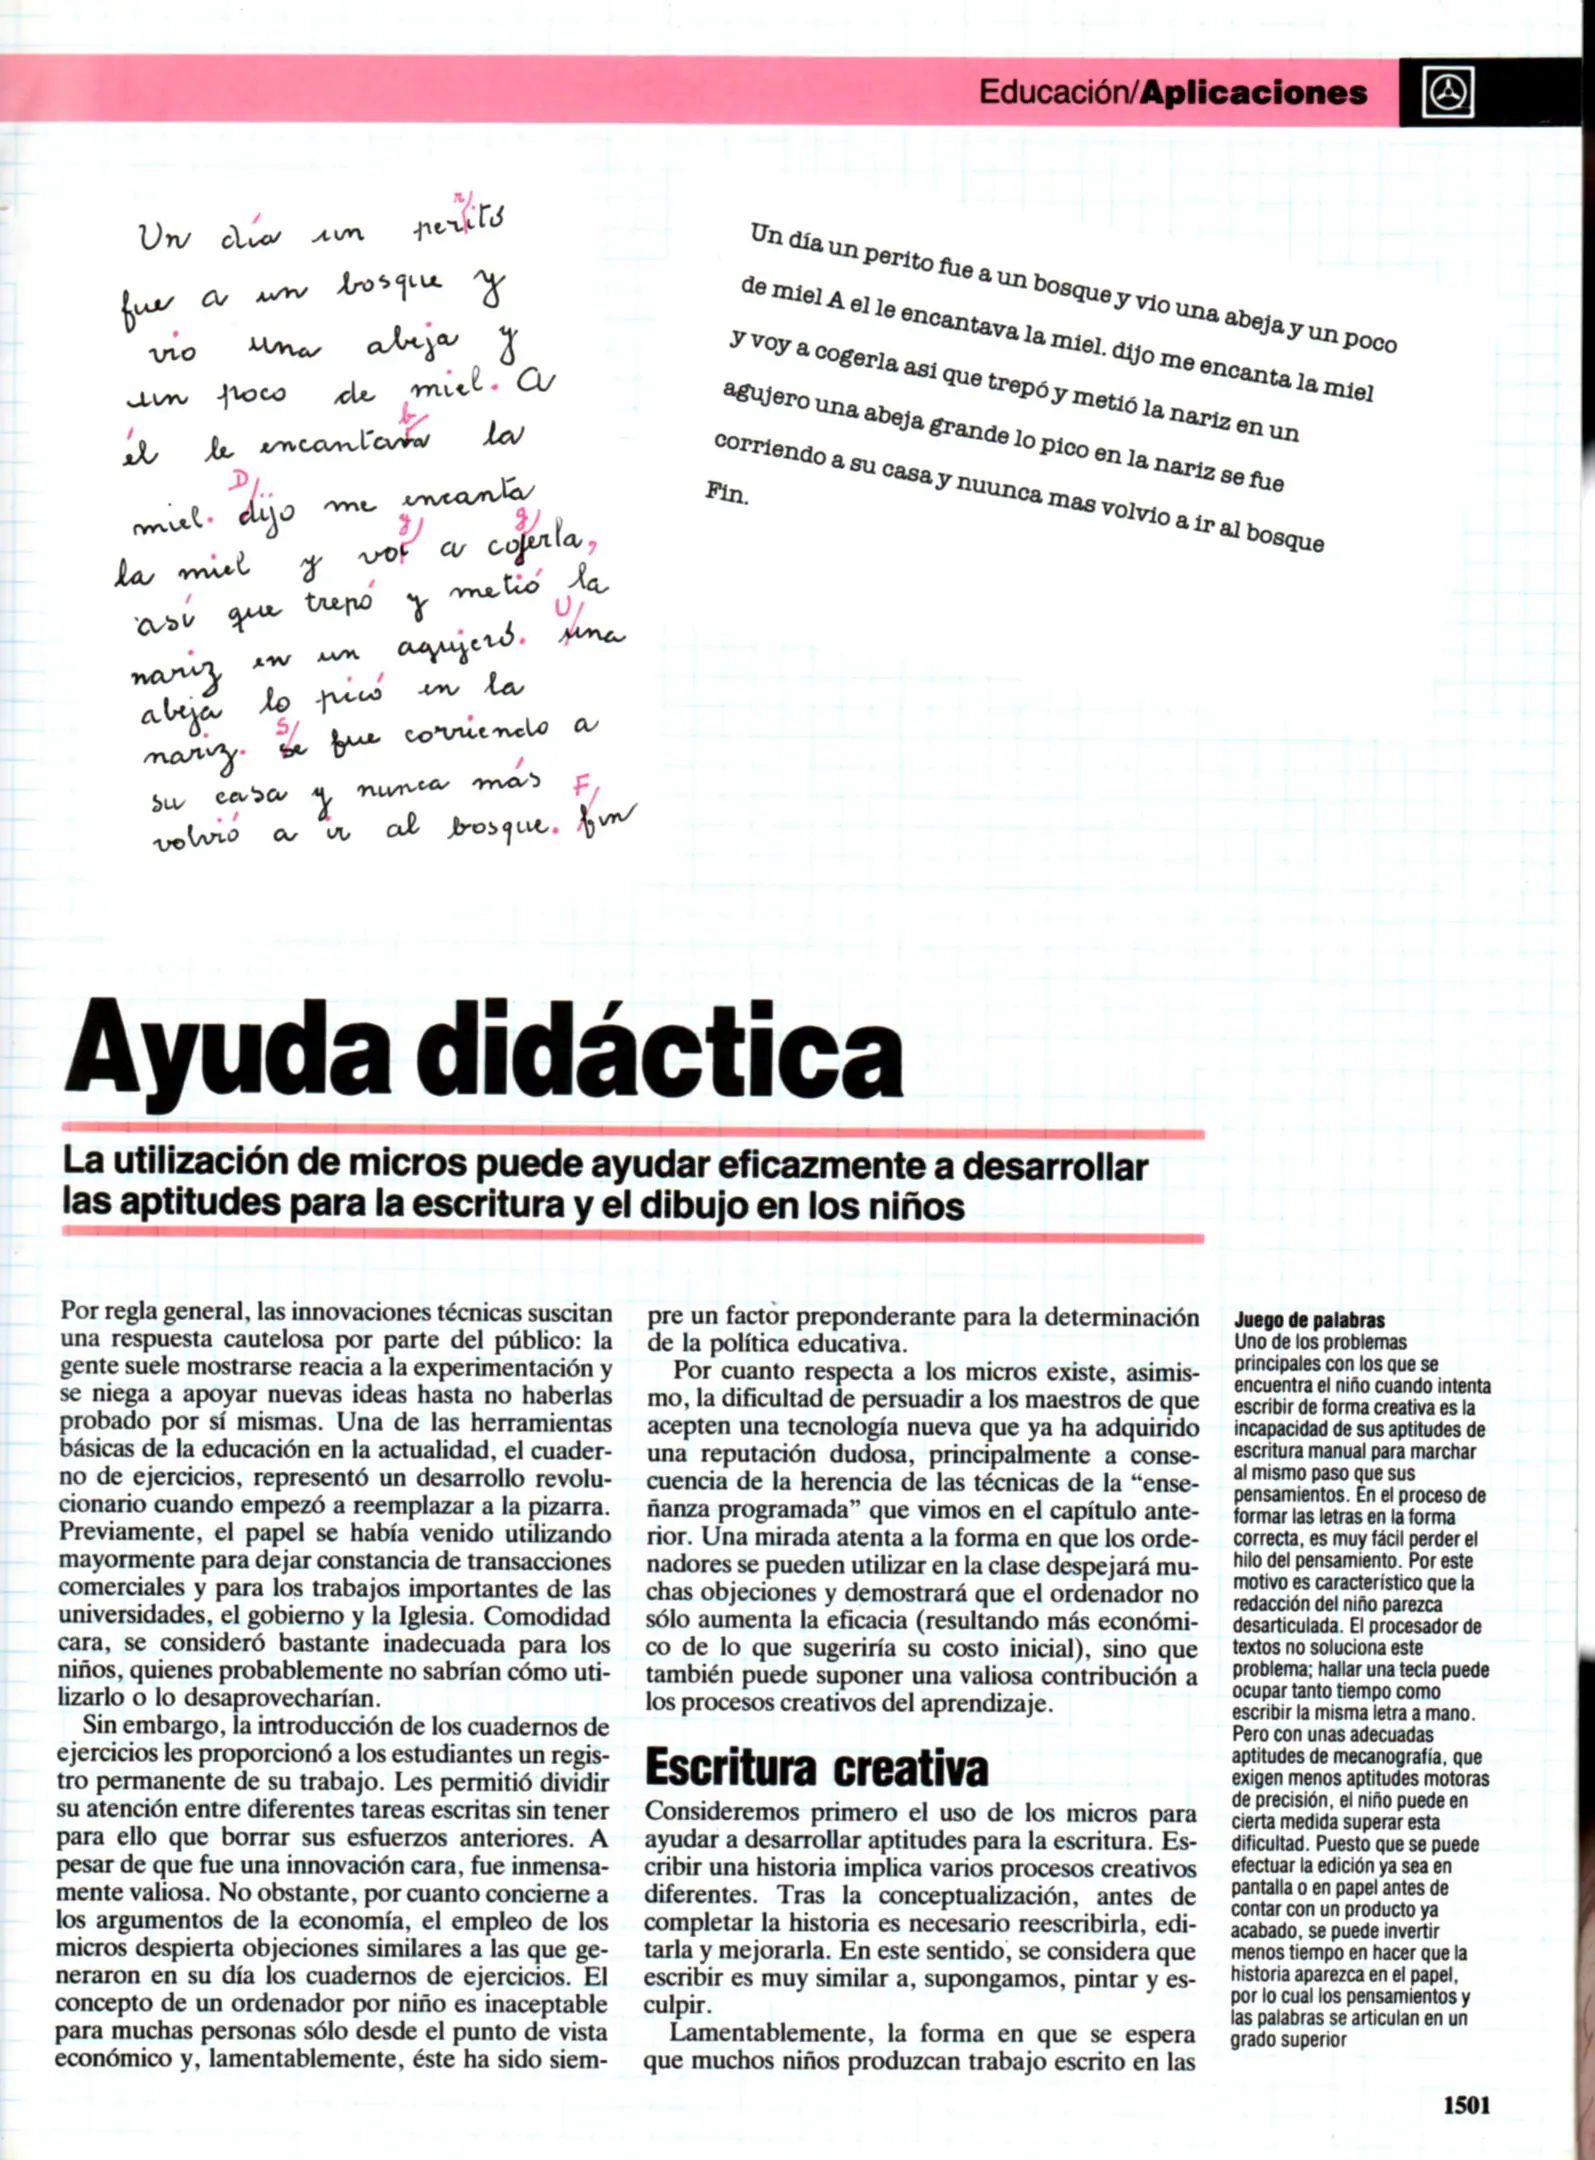 Educación/Aplicaciones
Un día un perito
r/
fue a un bosque y
vio una abeja y
un poco de miel. a
él le encantava la
b/
miel. dijo me encanta
D/
la miel y voi a cojerla,
y/ g/
así que trepó y metió la
nariz en un agujero. una
U/
abeja lo picó en la
nariz. se fue corriendo a
S/
su casa y nunca más
volvió a ir al bosque. fin
F/
Un día un perito fue a un bosque y vio una abeja y un poco
de miel A el le encantava la miel. dijo me encanta la miel
y voy a cogerla asi que trepó y metió la nariz en un
agujero una abeja grande lo pico en la nariz se fue
corriendo a su casa y nuunca mas volvio a ir al bosque
Fin.
Ayuda didáctica
La utilización de micros puede ayudar eficazmente a desarrollar
las aptitudes para la escritura y el dibujo en los niños
Por regla general, las innovaciones técnicas suscitan
una respuesta cautelosa por parte del público: la
gente suele mostrarse reacia a la experimentación y
se niega a apoyar nuevas ideas hasta no haberlas
probado por sí mismas. Una de las herramientas
básicas de la educación en la actualidad, el cuader-
no de ejercicios, representó un desarrollo revolu-
cionario cuando empezó a reemplazar a la pizarra.
Previamente, el papel se había venido utilizando
mayormente para dejar constancia de transacciones
comerciales y para los trabajos importantes de las
universidades, el gobierno y la Iglesia. Comodidad
cara, se consideró bastante inadecuada para los
niños, quienes probablemente no sabrían cómo uti-
lizarlo o lo desaprovecharían.
Sin embargo, la introducción de los cuadernos de
ejercicios les proporcionó a los estudiantes un regis-
tro permanente de su trabajo. Les permitió dividir
su atención entre diferentes tareas escritas sin tener
para ello que borrar sus esfuerzos anteriores. A
pesar de que fue una innovación cara, fue inmensa-
mente valiosa. No obstante, por cuanto concierne a
los argumentos de la economía, el empleo de los
micros despierta objeciones similares a las que ge-
neraron en su día los cuadernos de ejercicios. El
concepto de un ordenador por niño es inaceptable
para muchas personas sólo desde el punto de vista
económico y, lamentablemente, éste ha sido siem-
pre un factor preponderante para la determinación
de la política educativa.
Por cuanto respecta a los micros existe, asimis-
mo, la dificultad de persuadir a los maestros de que
acepten una tecnología nueva que ya ha adquirido
una reputación dudosa, principalmente a conse-
cuencia de la herencia de las técnicas de la “ense-
ñanza programada” que vimos en el capítulo ante-
rior. Una mirada atenta a la forma en que los orde-
nadores se pueden utilizar en la clase despejará mu-
chas objeciones y demostrará que el ordenador no
sólo aumenta la eficacia (resultando más económi-
co de lo que sugeriría su costo inicial), sino que
también puede suponer una valiosa contribución a
los procesos creativos del aprendizaje.
Escritura creativa
Consideremos primero el uso de los micros para
ayudar a desarrollar aptitudes para la escritura. Es-
cribir una historia implica varios procesos creativos
diferentes. Tras la conceptualización, antes de
completar la historia es necesario reescribirla, edi-
tarla y mejorarla. En este sentido, se considera que
escribir es muy similar a, supongamos, pintar y es-
culpir.
Lamentablemente, la forma en que se espera
que muchos niños produzcan trabajo escrito en las
Juego de palabras
Uno de los problemas
principales con los que se
encuentra el niño cuando intenta
escribir de forma creativa es la
incapacidad de sus aptitudes de
escritura manual para marchar
al mismo paso que sus
pensamientos. En el proceso de
formar las letras en la forma
correcta, es muy fácil perder el
hilo del pensamiento. Por este
motivo es característico que la
redacción del niño parezca
desarticulada. El procesador de
textos no soluciona este
problema; hallar una tecla puede
ocupar tanto tiempo como
escribir la misma letra a mano.
Pero con unas adecuadas
aptitudes de mecanografía, que
exigen menos aptitudes motoras
de precisión, el niño puede en
cierta medida superar esta
dificultad. Puesto que se puede
efectuar la edición ya sea en
pantalla o en papel antes de
contar con un producto ya
acabado, se puede invertir
menos tiempo en hacer que la
historia aparezca en el papel,
por lo cual los pensamientos y
las palabras se articulan en un
grado superior
1501